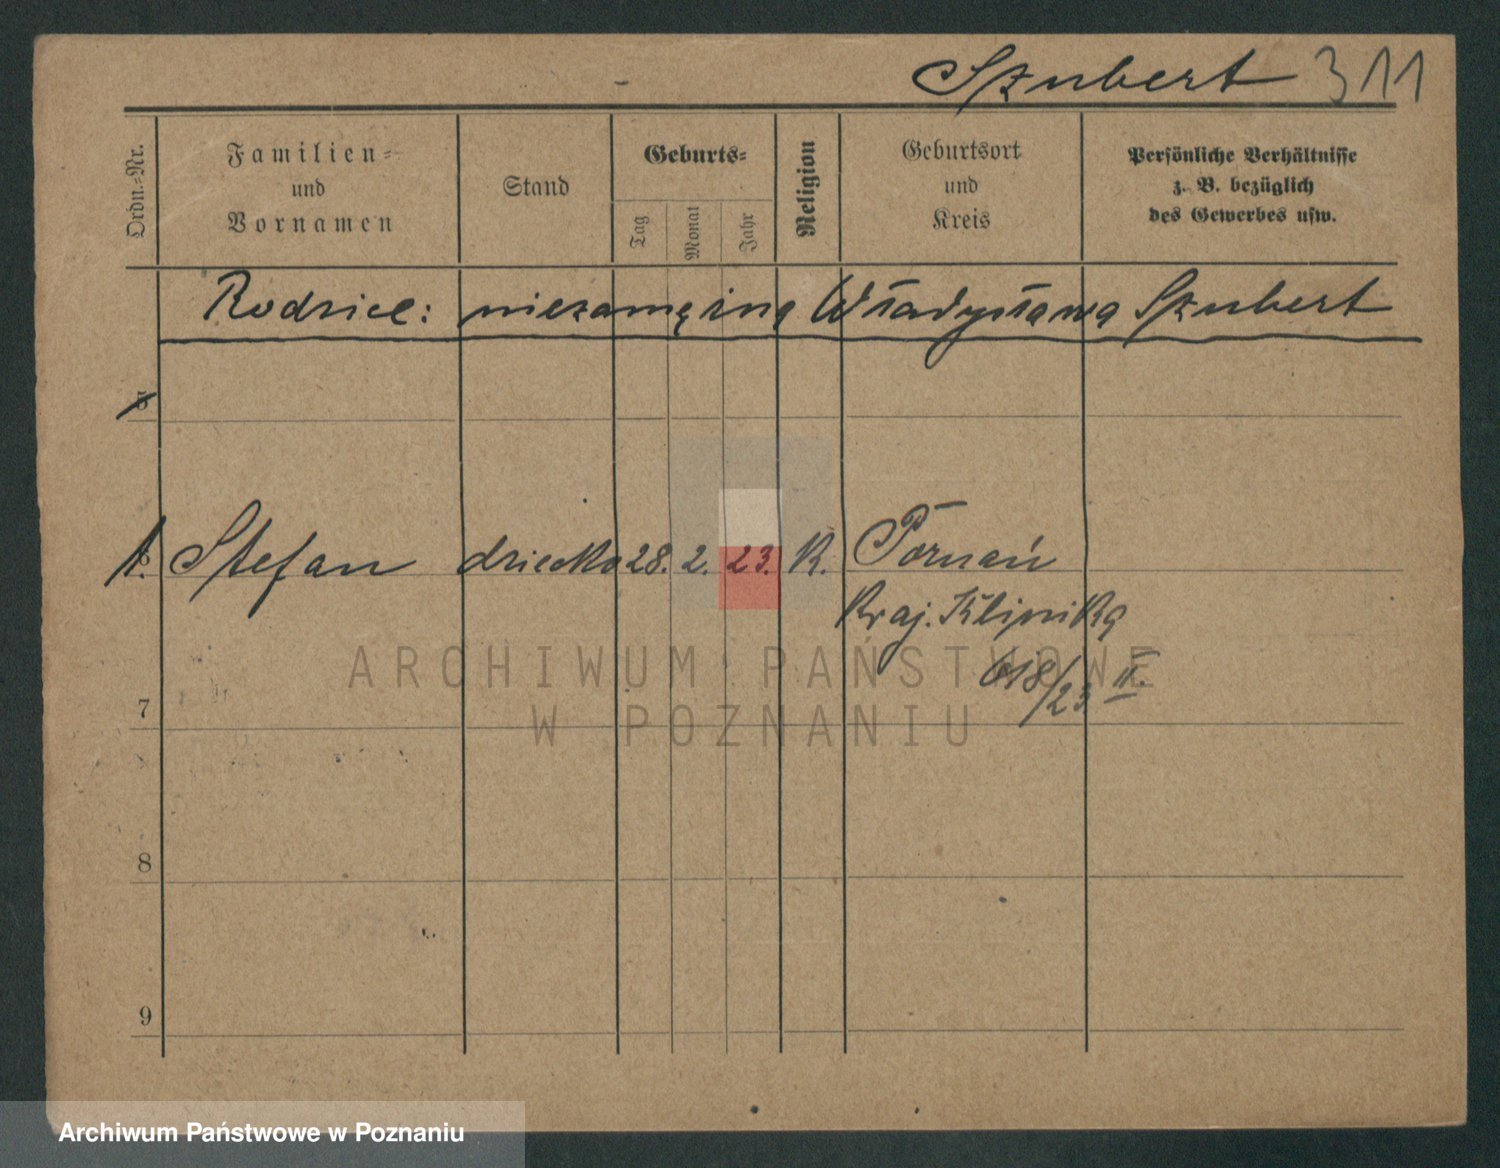 Szubert 311
Ordn.-Nr.
Familien-
und
Vornamen
Stand
Geburts-
Tag
Monat
Jahr
Religion
Geburtsort
und
Kreis
Persönliche Verhältnisse
z. B. bezüglich
des Gewerbes usw.
Rodzice: niezamężna Władysława Szubert
5
1. Stefan dziecko 28. 2. 23. K. Poznań
Kraj. Klinika
618/23 II.
7
8
9
ARCHIWUM PAŃSTWOWE
W POZNANIU
Archiwum Państwowe w Poznaniu